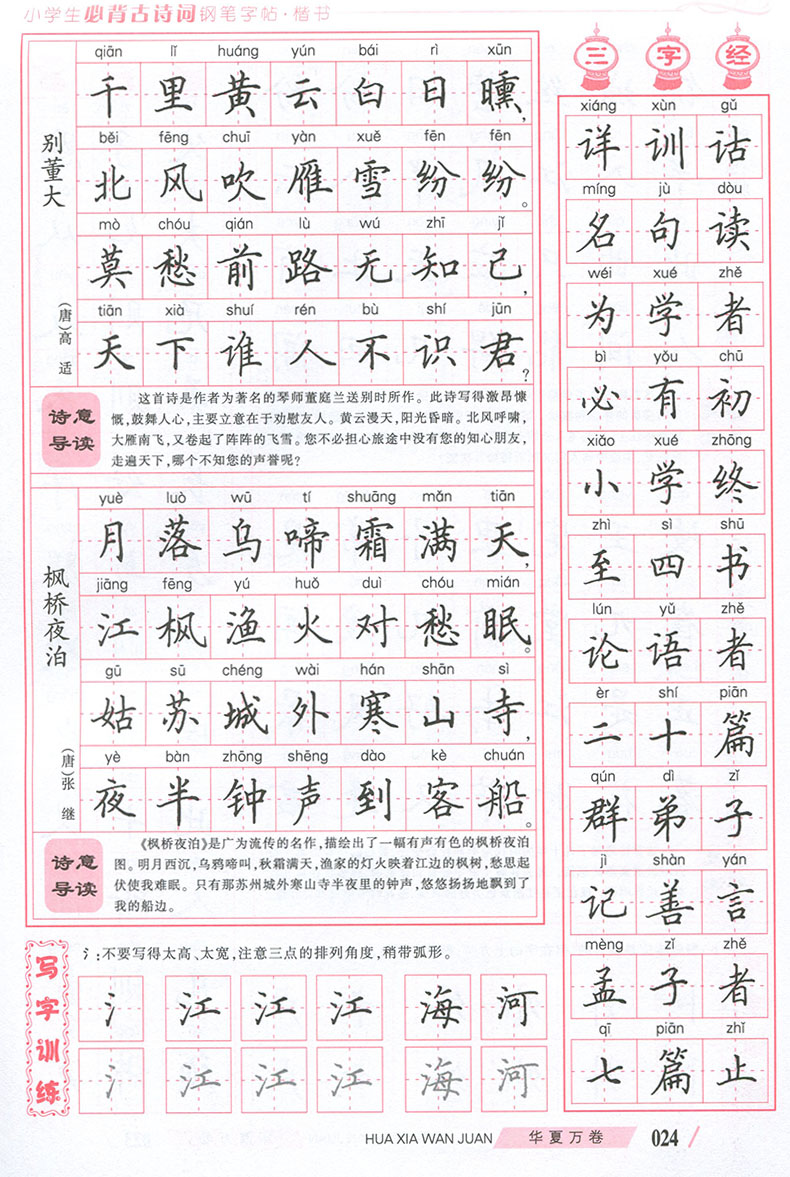 小学生必背古诗词钢笔字帖·楷书
别董大
(唐)高适
qiān lǐ huáng yún bái rì xūn
千里黄云白日曛,
běi fēng chuī yàn xuě fēn fēn
北风吹雁雪纷纷。
mò chóu qián lù wú zhī jǐ
莫愁前路无知己,
tiān xià shuí rén bù shí jūn
天下谁人不识君?
诗意
导读
这首诗是作者为著名的琴师董庭兰送别时所作。此诗写得激昂慷
慨,鼓舞人心,主要立意在于劝慰友人。黄云漫天,阳光昏暗。北风呼啸,
大雁南飞,又卷起了阵阵的飞雪。您不必担心旅途中没有您的知心朋友,
走遍天下,哪个不知您的声誉呢?
枫桥夜泊
(唐)张继
yuè luò wū tí shuāng mǎn tiān
月落乌啼霜满天,
jiāng fēng yú huǒ duì chóu mián
江枫渔火对愁眠。
gū sū chéng wài hán shān sì
姑苏城外寒山寺,
yè bàn zhōng shēng dào kè chuán
夜半钟声到客船。
诗意
导读
《枫桥夜泊》是广为流传的名作,描绘出了一幅有声有色的枫桥夜泊
图。明月西沉,乌鸦啼叫,秋霜满天,渔家的灯火映着江边的枫树,愁思起
伏使我难眠。只有那苏州城外寒山寺半夜里的钟声,悠悠扬扬地飘到了
我的船边。
写字训练
氵:不要写得太高、太宽,注意三点的排列角度,稍带弧形。
氵 江 江 江 海 河
氵 江 江 江 海 河
三字经
xiáng xùn gǔ
详训诂
míng jù dòu
名句读
wéi xué zhě
为学者
bì yǒu chū
必有初
xiǎo xué zhōng
小学终
zhì sì shū
至四书
lún yǔ zhě
论语者
èr shí piān
二十篇
qún dì zǐ
群弟子
jì shàn yán
记善言
mèng zǐ zhě
孟子者
qī piān zhǐ
七篇止
HUA XIA WAN JUAN 华夏万卷 024